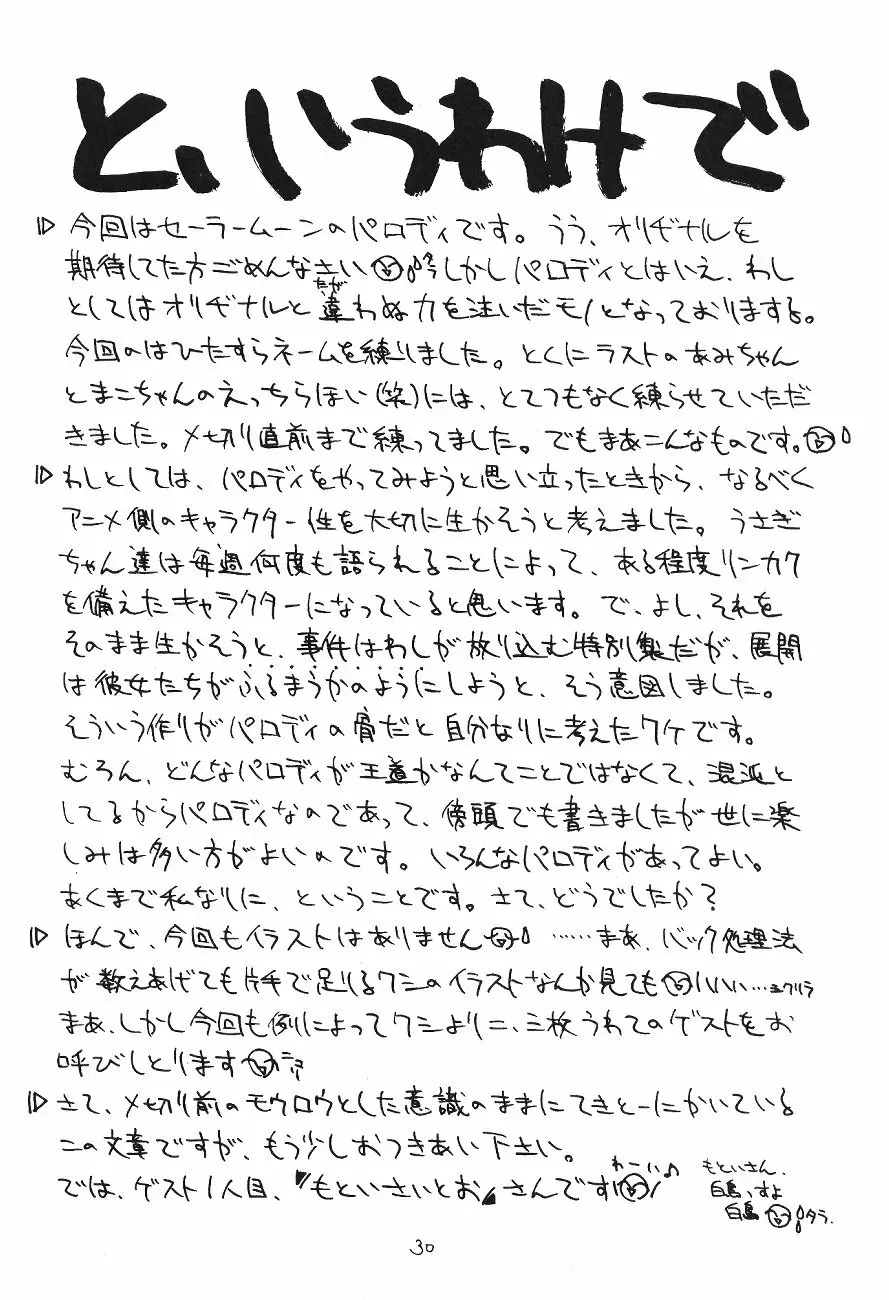 というわけで
▷今回はセーラームーンのパロディです。うう、オリヂナルを
期待してた方ごめんなさい しかしパロディとはいえ、わし
としてはオリヂナルと違(たが)わぬ力を注いだモノとなっておりまする。
今回のはひたすらネームを練りました。とくにラストのあみちゃん
とまこちゃんのえっちらほい(笑)には、とてつもなく練らせていただ
きました。〆切り直前まで練ってました。でもまあこんなものです。
▷わしとしては、パロディをやってみようと思い立ったときから、なるべく
アニメ側のキャラクター性を大切に生かそうと考えました。うさぎ
ちゃん達は毎週何度も語られることによって、ある程度リンカク
を備えたキャラクターになっていると思います。で、よし、それを
そのまま生かそうと、事件はわしが放り込む特別製だが、展開
は彼女たちがふるまうかのようにしようと、そう意図しました。
そういう作りがパロディの骨だと自分なりに考えたワケです。
むろん、どんなパロディが王道かなんてことではなくて、混沌と
してるからパロディなのであって、傍頭でも書きましたが世に楽
しみは多い方がよいのです。いろんなパロディがあってよい。
あくまで私なりに、ということです。さて、どうでしたか?
▷ほんで、今回もイラストはありません ……まあ、バック処理法
が数えあげても片手で足りるワシのイラストなんか見ても
まあ、しかし今回も例によってワシより二、三枚うわてのゲストをお
呼びしとります
▷さて、〆切り前のモウロウとした意識のままにてきとーにかいている
この文章ですが、もう少しおつきあい下さい。
では、ゲスト1人目、『もといさいとお』さんです!
わーい♪
もといさん、
白鳥っすよ
白鳥 タラ.
30